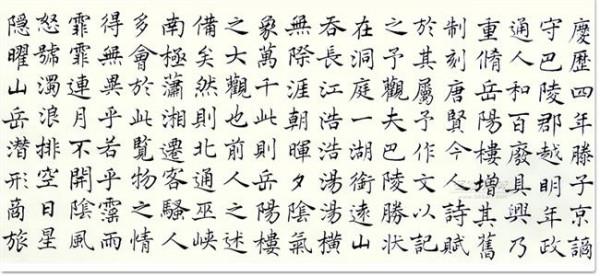 慶歷四年滕子京謫
守巴陵郡越明年政
通人和百廢具興乃
重脩岳陽樓增其舊
制刻唐賢今人詩賦
於其屬予作文以記
之予觀夫巴陵勝狀
在洞庭一湖銜遠山
吞長江浩浩湯湯橫
無際涯朝暉夕陰氣
象萬千此則岳陽樓
之大觀也前人之述
備矣然則北通巫峽
南極瀟湘遷客騷人
多會於此覽物之情
得無異乎若乎霪雨
霏霏連月不開陰風
怒號濁浪排空日星
隱曜山岳潛形商旅